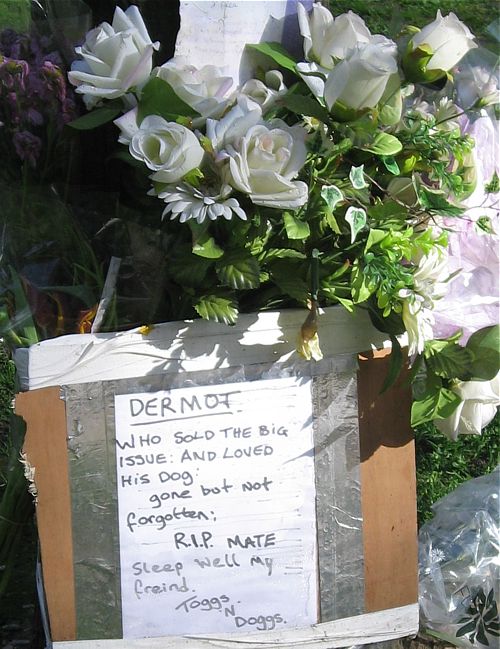 DERMOT.
WHO SOLD THE BIG
ISSUE: AND LOVED
HIS DOG:
gone but not
forgotten;
R.I.P. MATE
Sleep well my
freind.
Toggs
N
Doggs.